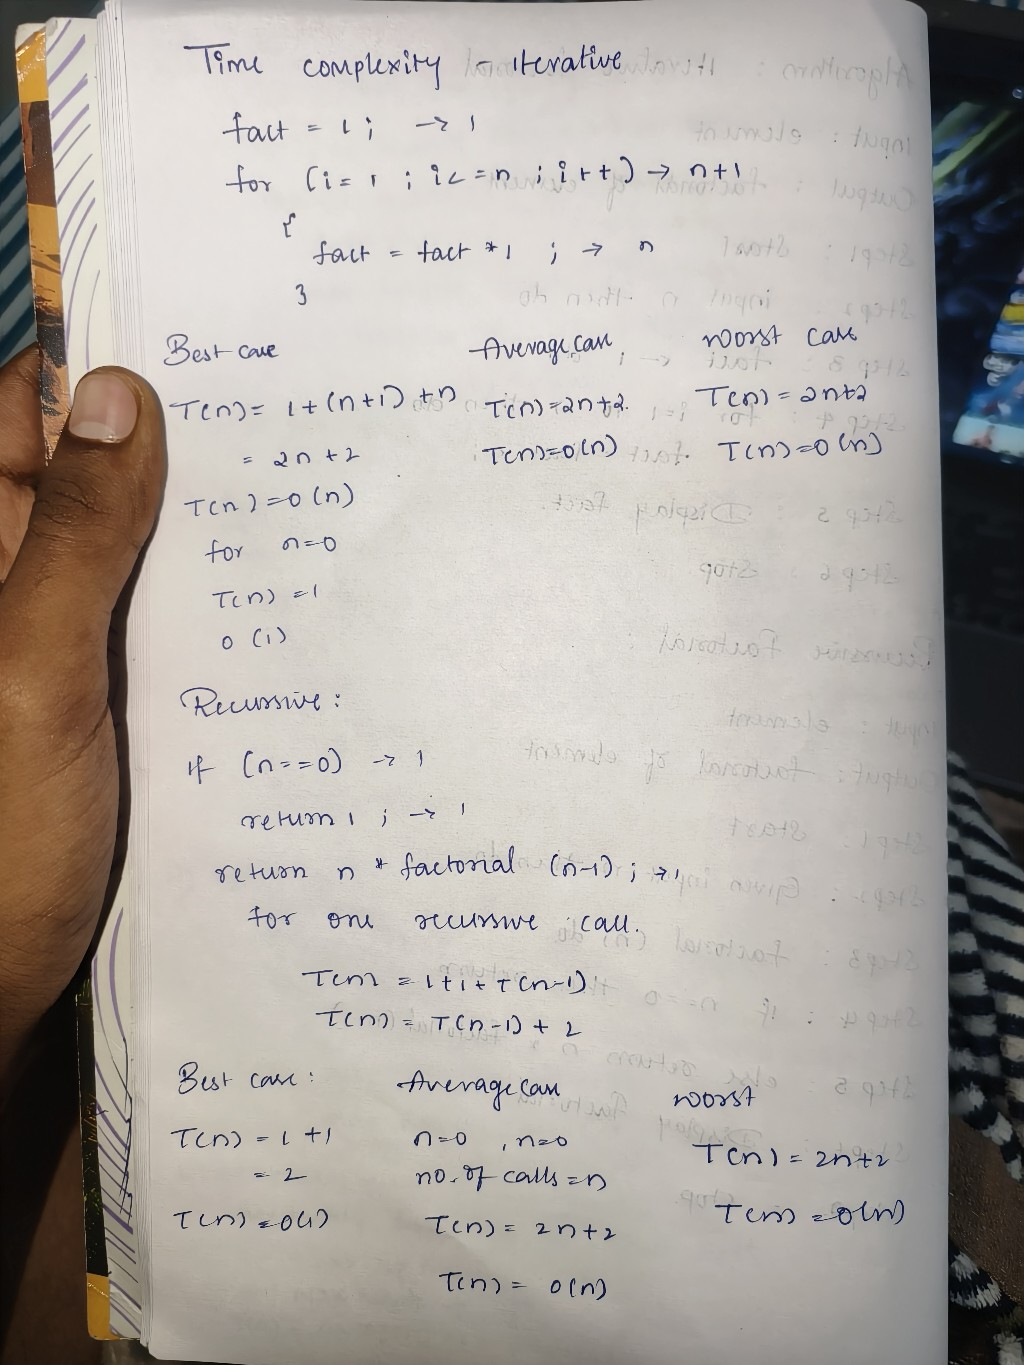 Time complexity - iterative
fact = 1 ; → 1
for (i = 1 ; i <= n ; i++) → n+1
{
fact = fact * 1 ; → n
}
Best case
T(n) = 1 + (n+1) + n
= 2n + 2
T(n) = O(n)
for n=0
T(n) = 1
O(1)
Average case
T(n) = 2n+2.
T(n) = O(n)
Worst case
T(n) = 2n+2
T(n) = O(n)
Recurssive :
if (n==0) → 1
return 1 ; → 1
return n * factorial (n-1) ; → 1
for one recurssive call.
T(n) = 1+1+T(n-1)
T(n) = T(n-1) + 2
Best case :
T(n) = 1 + 1
= 2
T(n) = O(1)
Average case
n=0 , n=0
no. of calls = n
T(n) = 2n+2
T(n) = O(n)
Worst
T(n) = 2n+2
T(n) = O(n)